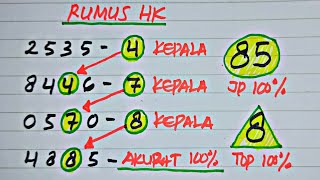 RUMUS HK
2535-4 KEPALA
8446-7 KEPALA
0570-8 KEPALA
4885-AKURAT 100%
85
JP 100%
8
TOP 100%